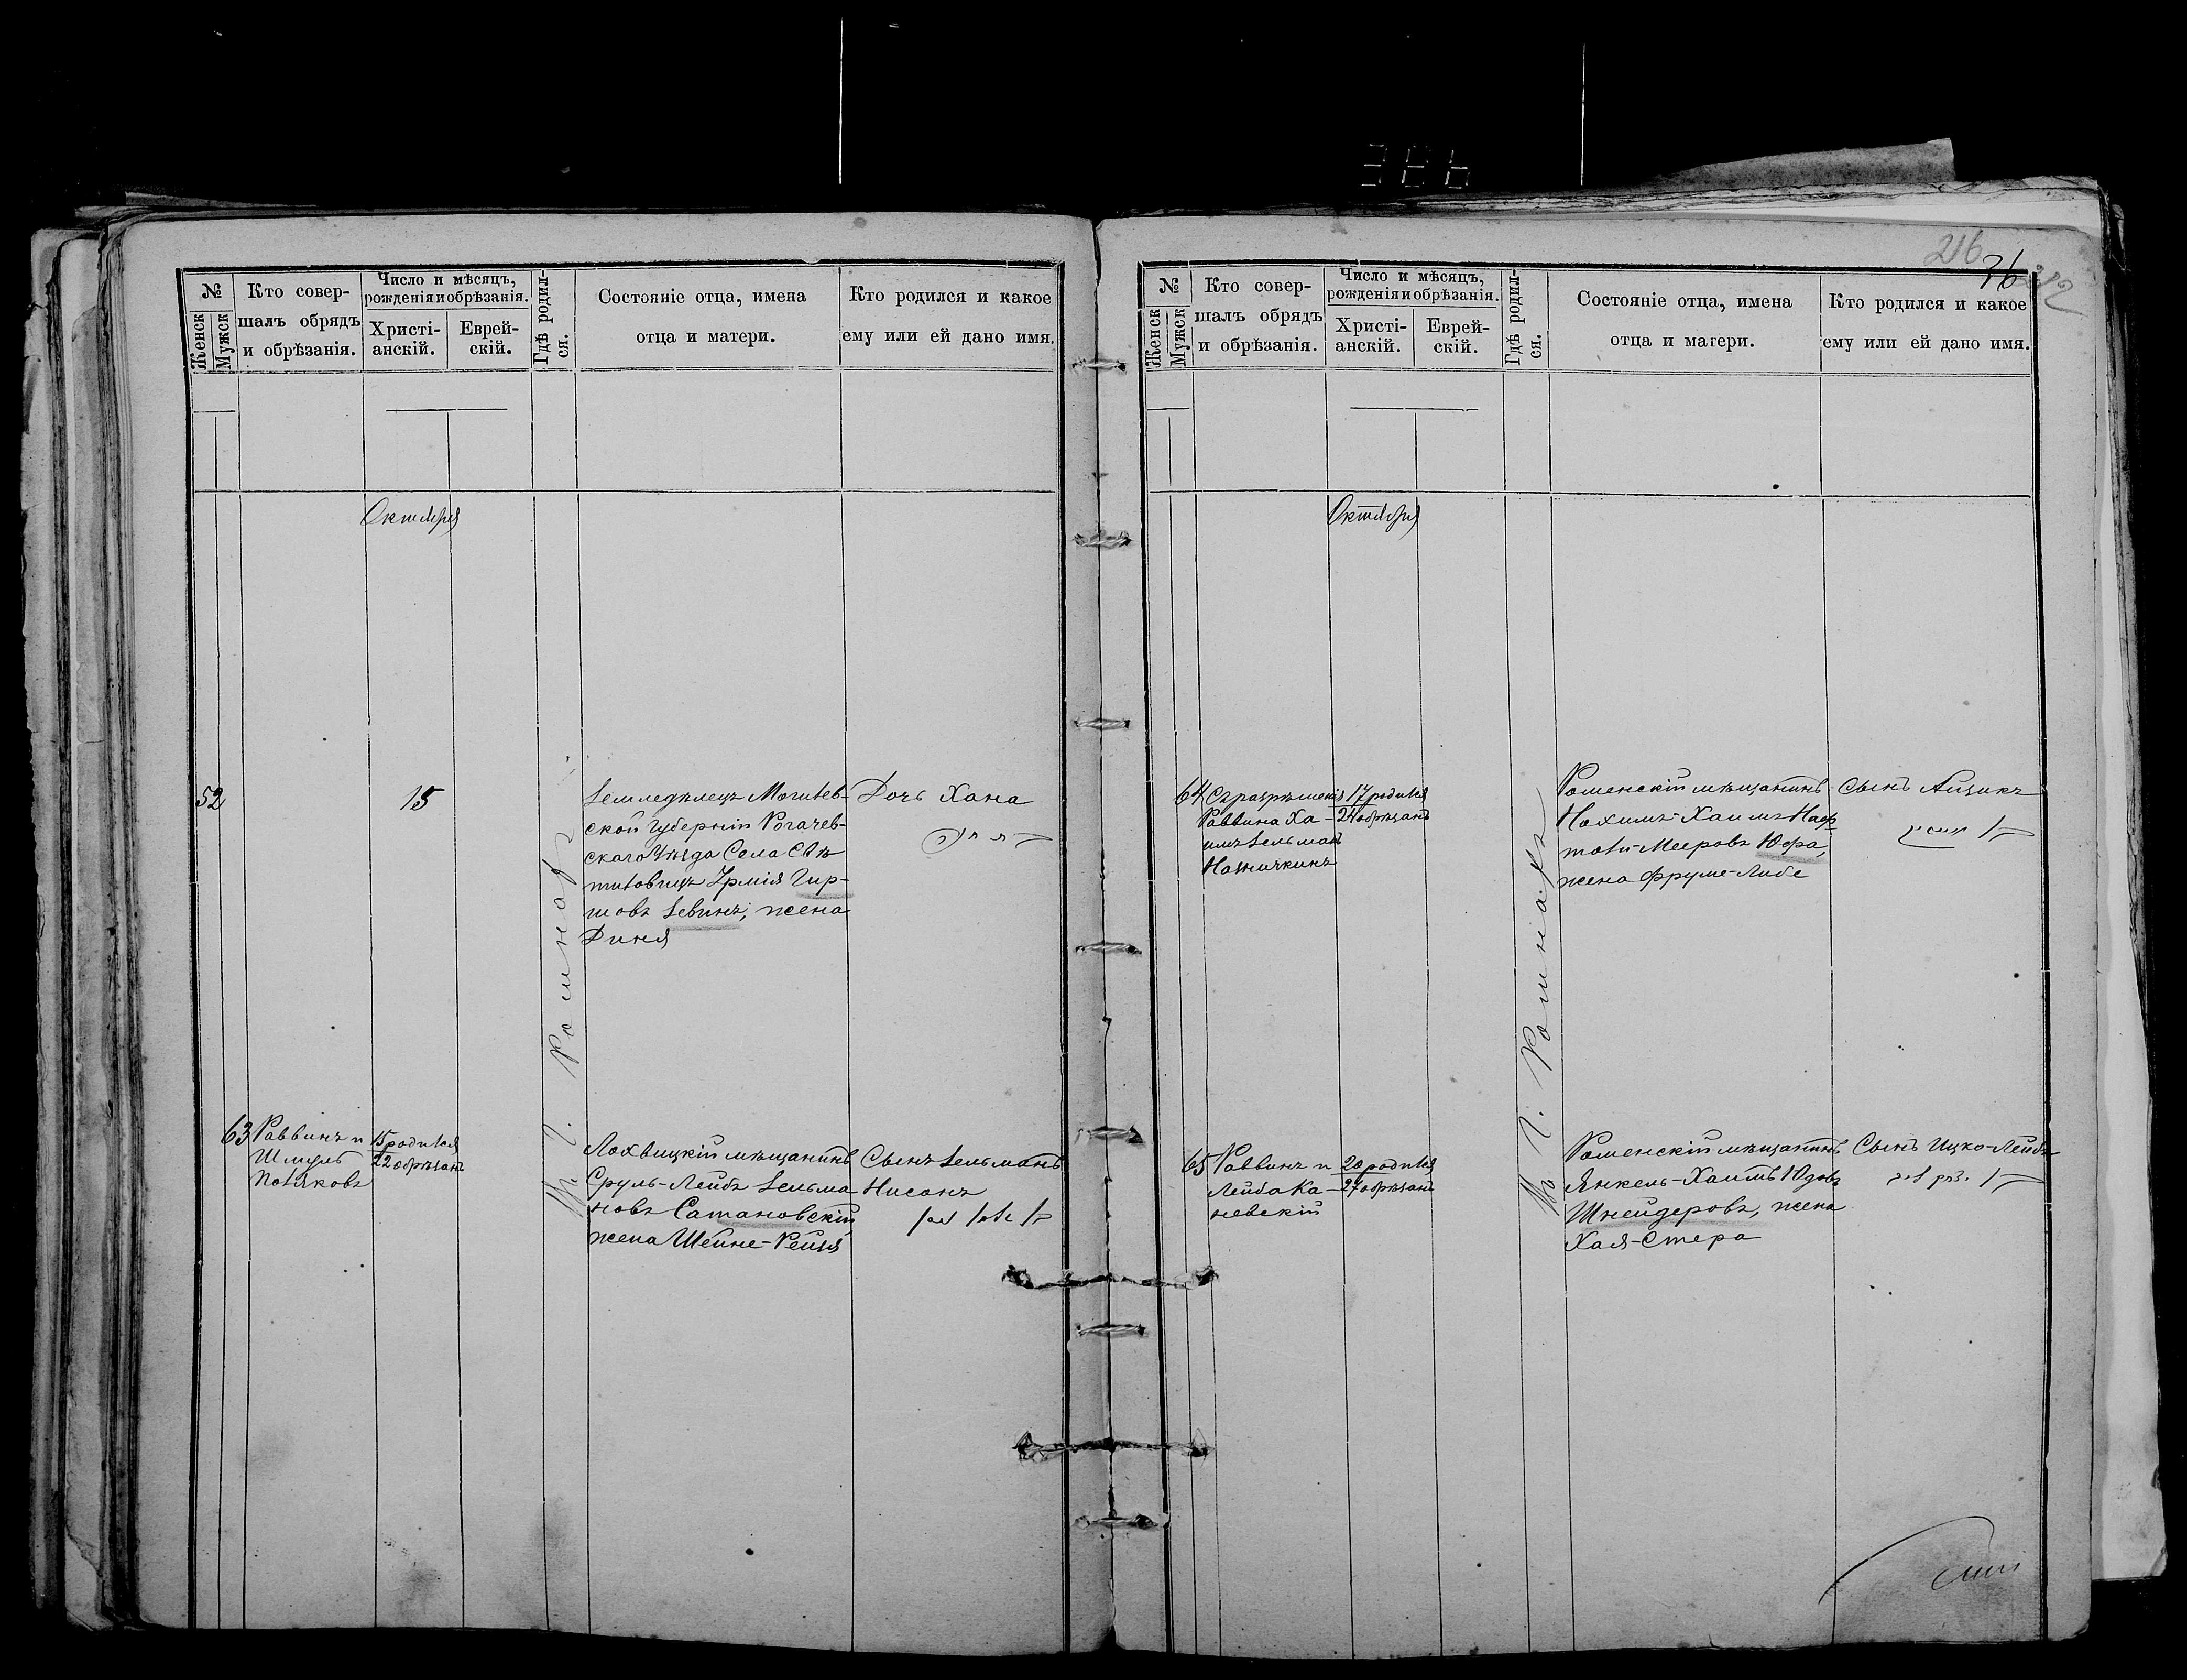 №
Женск
Мужск
Кто совер-
шалъ обрядъ
и обрѣзанія.
Число и мѣсяцъ,
рожденія и обрѣзанія.
Христі-
анскій.
Еврей-
скій.
Гдѣ родил-
ся.
Состояніе отца, имена
отца и матери.
Кто родился и какое
ему или ей дано имя.
Октября
52
15
Земледѣлецъ Могилев-
ской Губерніи Рогачев-
скаго Уѣзда Села Свѣ-
тиловицъ Ірмія Гир-
шовъ Левинъ, жена
Диня
Дочь Хана
Въ Г. Ромнахъ
63
Раввинъ и
Шмуль
Поляковъ
15 родился
22 обрѣзанъ
Лохвицкій мѣщанинъ
Сруль-Лейбъ Зельма-
новъ Сатановскій
жена Шейне-Рейзя
Сынъ Зельманъ
Нисонъ
216
36
№
Женск
Мужск
Кто совер-
шалъ обрядъ
и обрѣзанія.
Число и мѣсяцъ,
рожденія и обрѣзанія.
Христі-
анскій.
Еврей-
скій.
Гдѣ родил-
ся.
Состояніе отца, имена
отца и матери.
Кто родился и какое
ему или ей дано имя.
Октября
64
Съ разрѣшенія
Раввина Ха-
имъ Зельманъ
17 родился
24 обрѣзанъ
Роменскій мѣщанинъ
Нохимъ-Хаимъ Наф-
толи-Мееровъ Юфа,
жена Фруме-Либе
Сынъ Айзикъ
Въ Г. Ромнахъ
65
Раввинъ и
Лейба Ка-
невскій
20 родился
27 обрѣзанъ
Роменскій мѣщанинъ
Янкель-Хаимъ Юдовъ
Шнейдеровъ, жена
Хая-Стера
Сынъ Ицко-Лейбъ